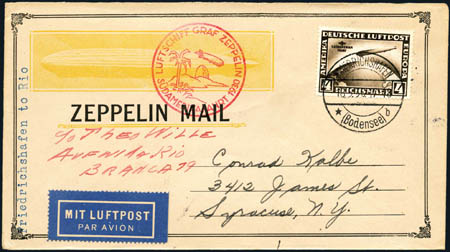 LUFTSCHIFF GRAF ZEPPELIN
SÜDAMERIKAFAHRT
DEUTSCHE LUFTPOST
AMERIKA
EUROPA
4
REICHSMARK
4
FRIEDRICHSHAFEN
(Bodensee)
ZEPPELIN MAIL
Friedrichshafen to Rio
To Theo Wille
Avenida Rio
Branca 79
Conrad Kolbe
3412 James St.
Syracuse, N.Y.
MIT LUFTPOST
PAR AVION